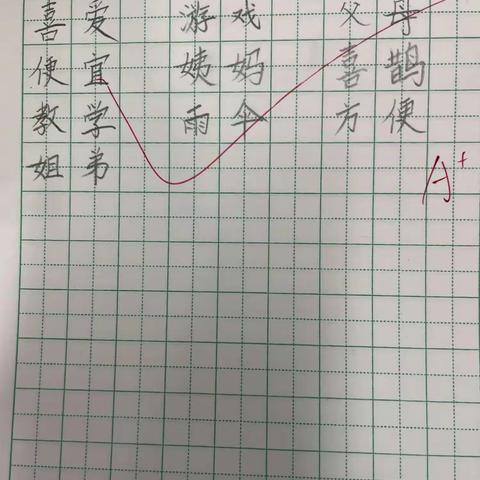 喜爱 游戏 父母
便宜 姨妈 喜鹊
教学 雨伞 方便
姐弟
A+